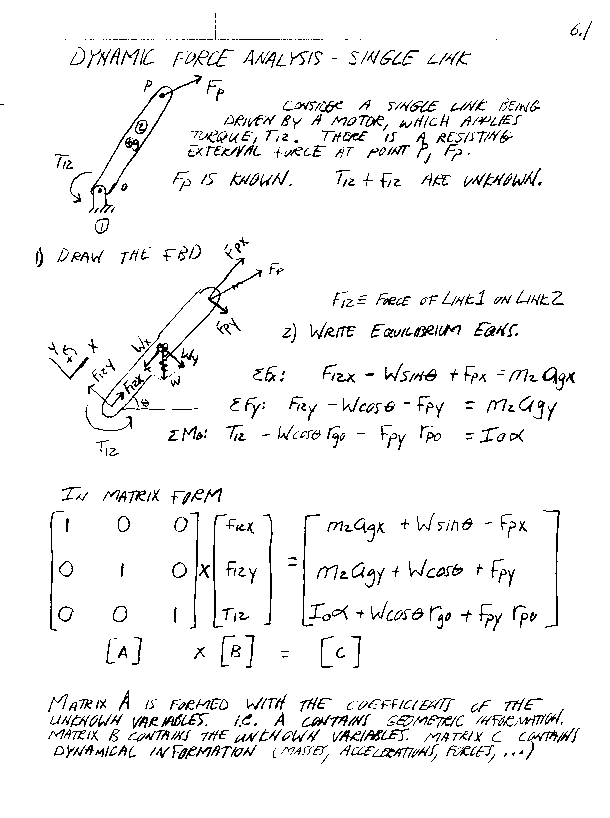 6.1
DYNAMIC FORCE ANALYSIS - SINGLE LINK
P
Fp
CONSIDER A SINGLE LINK BEING
DRIVEN BY A MOTOR, WHICH APPLIES
TORQUE, T12. THERE IS A RESISTING
EXTERNAL FORCE AT POINT P, Fp.
Fp IS KNOWN. T12 + F12 ARE UNKNOWN.
2
g
T12
o
1
1) DRAW THE FBD
Fpx
Fp
Fpy
F12 ≡ FORCE OF LINK1 ON LINK2
2) WRITE EQUILIBRIUM EQNS.
Y + X
Wx
Wy
W
F12y
F12x
θ
T12
ΣFx: F12x - Wsinθ + Fpx = m2agx
ΣFy: F12y - Wcosθ - Fpy = m2agy
ΣMo: T12 - Wcosθ rgo - Fpy rpo = Ioα
IN MATRIX FORM
[1 0 0] [F12x] [m2agx + Wsinθ - Fpx]
[0 1 0] x [F12y] = [m2agy + Wcosθ + Fpy]
[0 0 1] [T12] [Ioα + Wcosθ rgo + Fpy rpo]
[A] x [B] = [C]
MATRIX A IS FORMED WITH THE COEFFICIENTS OF THE
UNKNOWN VARIABLES. I.E. A CONTAINS GEOMETRIC INFORMATION.
MATRIX B CONTAINS THE UNKNOWN VARIABLES. MATRIX C CONTAINS
DYNAMICAL INFORMATION (MASSES, ACCELERATIONS, FORCES, ...)